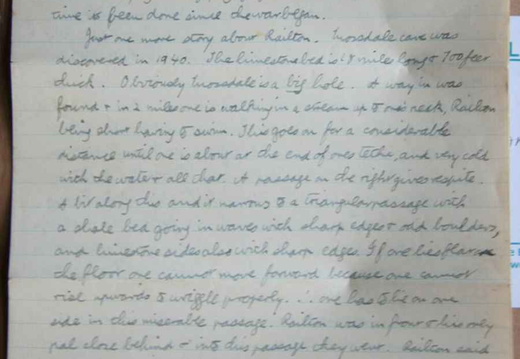 time is been done since the war began.
Just one more story about Railton. Mossdale cave was
discovered in 1940. The limestone bed is 1¾ mile long & 700 feet
thick. Obviously Mossdale is a big hole. A way in was
found & in 2 miles one is walking in a stream up to one's neck, Railton
being short having to swim. This goes on for a considerable
distance until one is about at the end of ones tether, and very cold
with the water & all that. A passage on the right gives respite.
A bit along this and it narrows to a triangular passage with
a shale bed going in waves with sharp edges & odd boulders,
and limestone sides also with sharp edges. If one lies flat on
the floor one cannot move forward because one cannot
rise upwards to wriggle properly. ∴ one has to lie on one
side in this miserable passage. Railton was in front & his only
pal close behind & into this passage they went. Railton said